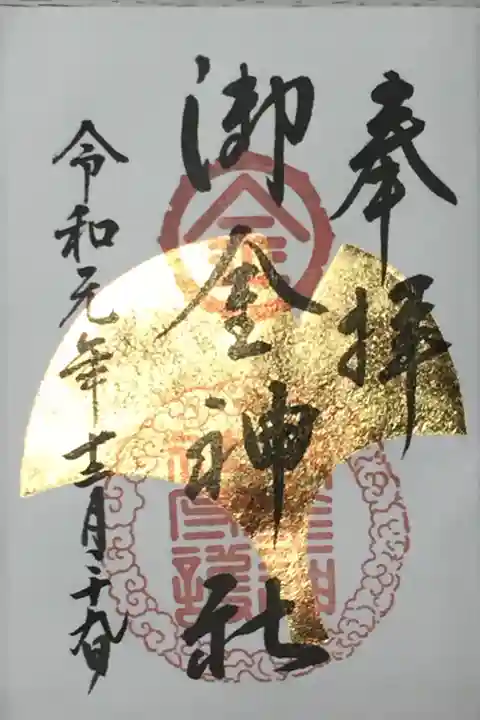 奉拝
御金神社
令和元年十二月二十九日
金